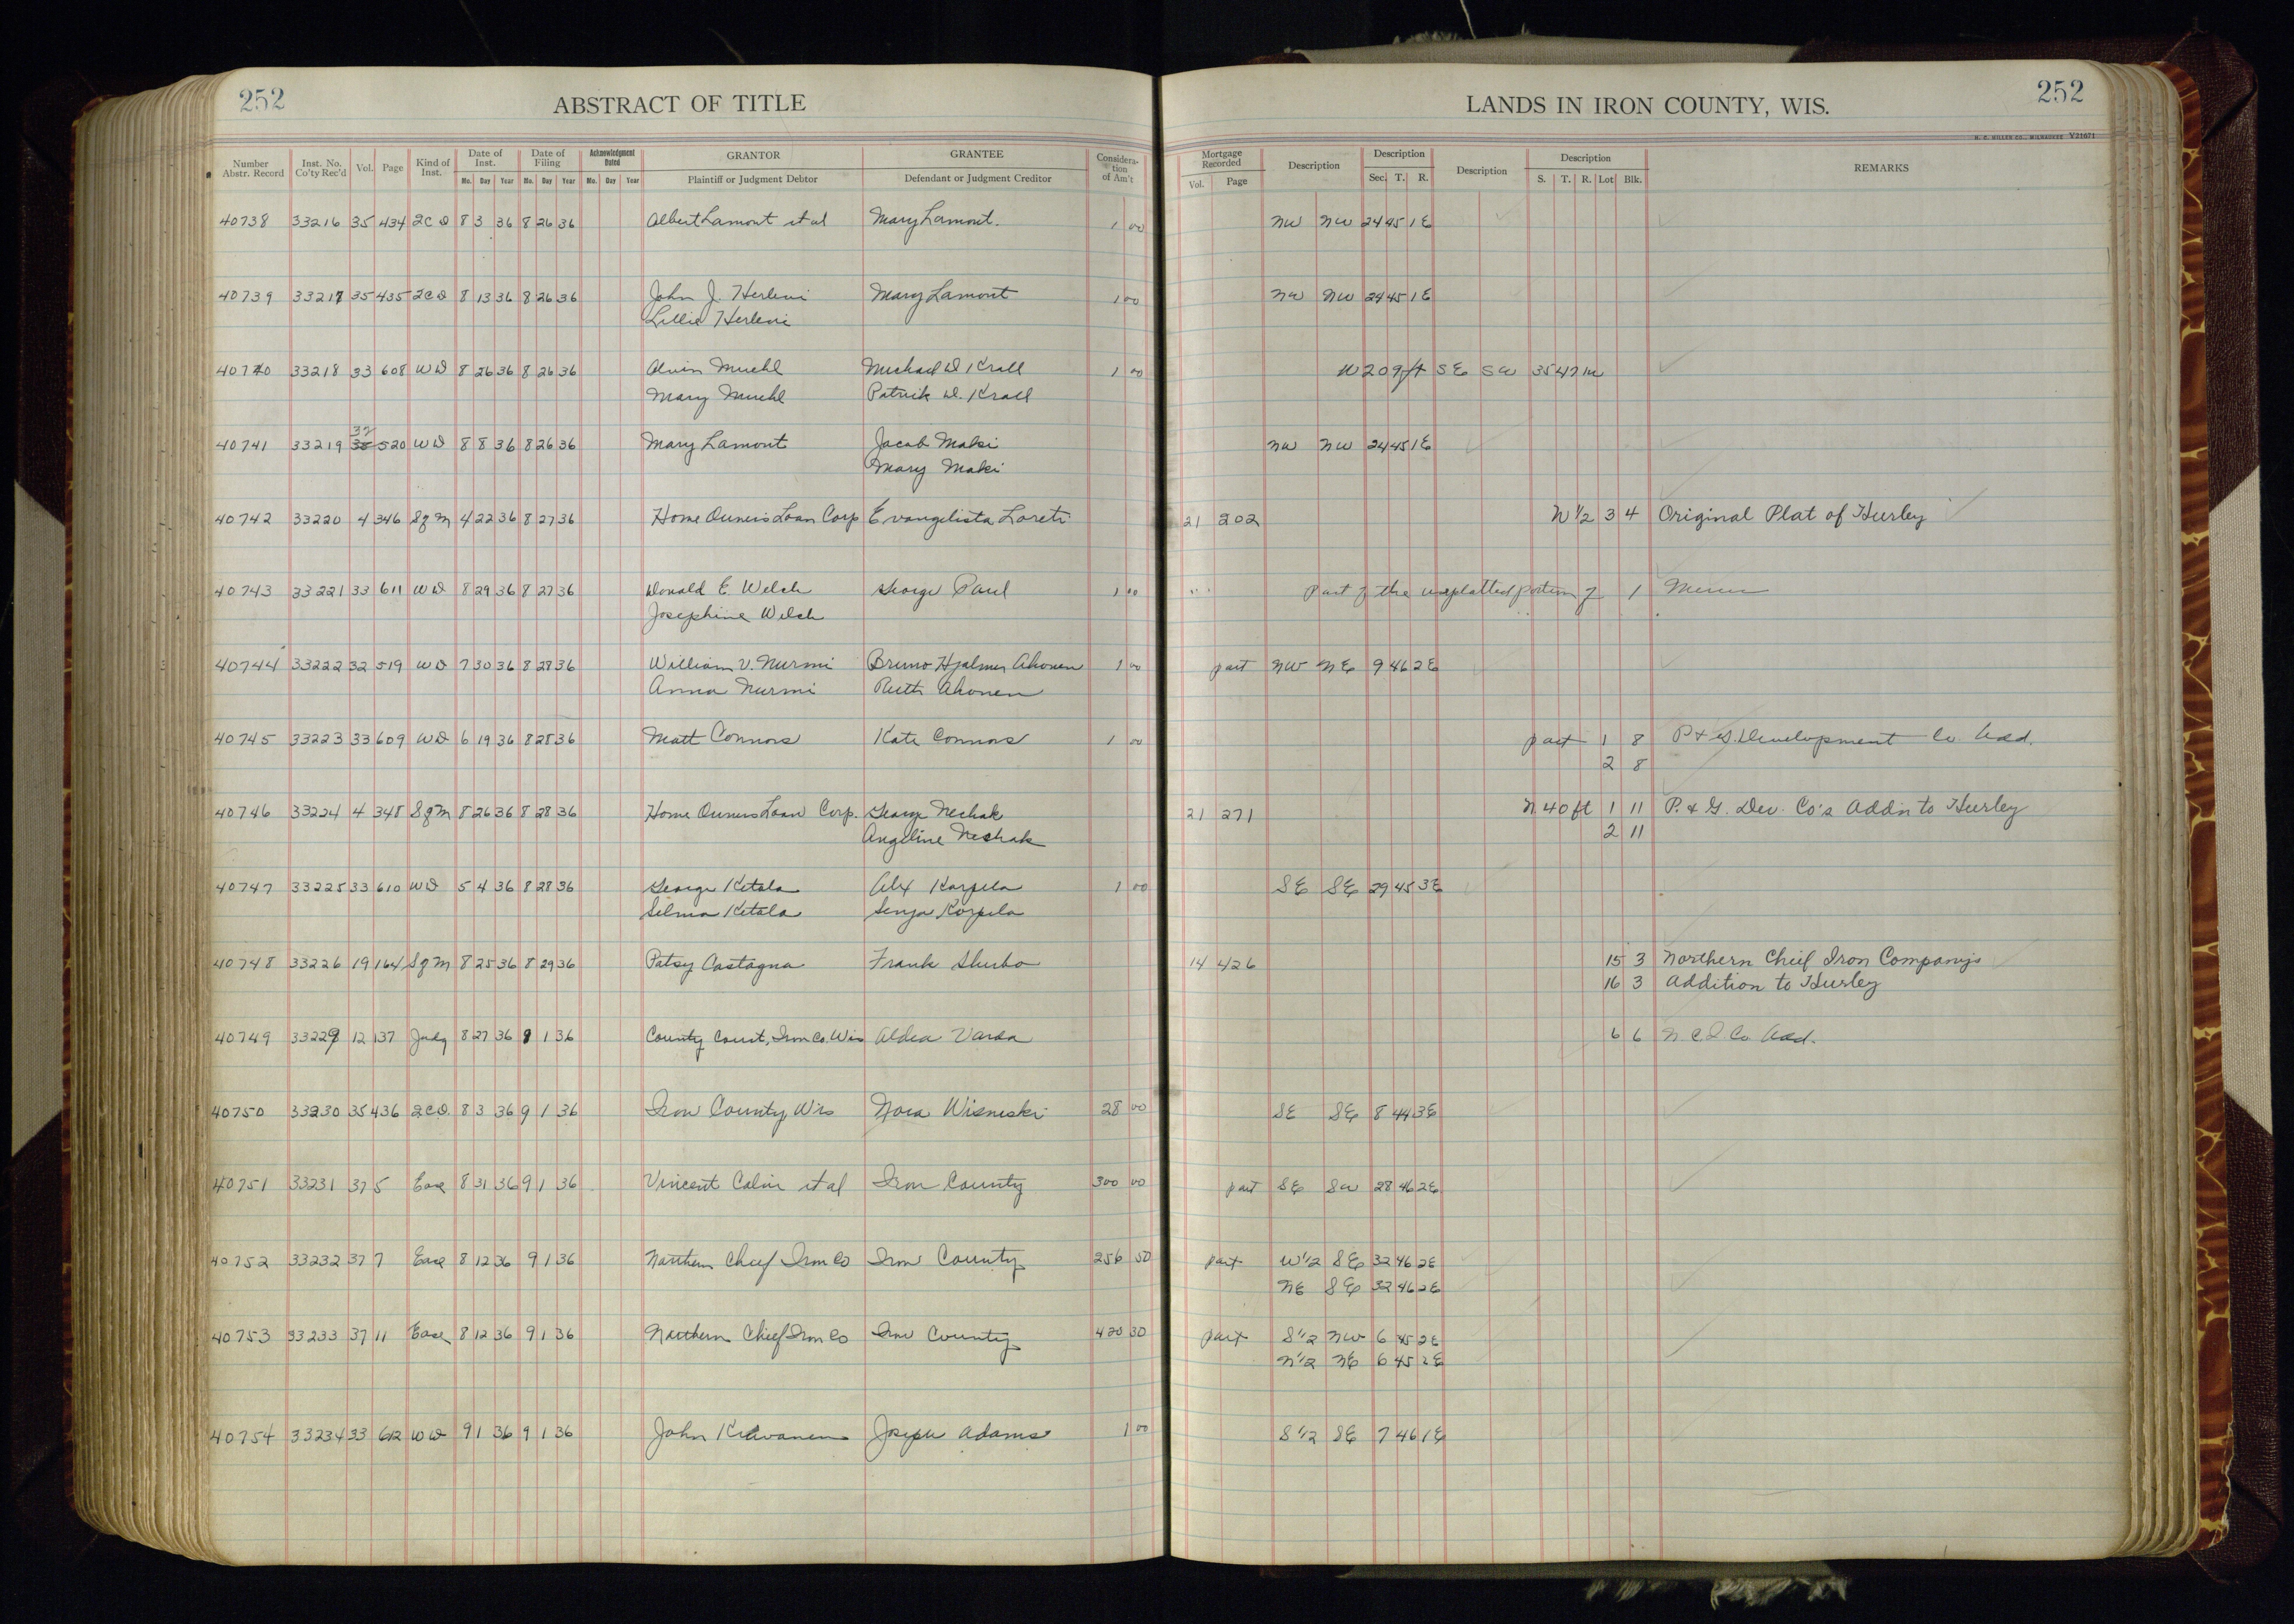 252 ABSTRACT OF TITLE LANDS IN IRON COUNTY, WIS. 252
H. C. MILLER CO., MILWAUKEE Y21671
Number Abstr. Record Inst. No. Co'ty Rec'd Vol. Page Kind of Inst. Date of Inst. Date of Filing Acknowledgment Dated GRANTOR GRANTEE Consideration of Am't Mortgage Recorded Description Description Description Description REMARKS
Mo. Day Year Mo. Day Year Mo. Day Year Plaintiff or Judgment Debtor Defendant or Judgment Creditor Vol. Page Sec. T. R. S. T. R. Lot Blk.
40738 33216 35 434 2CD 8 3 36 8 26 36 Albert Lamont et al Mary Lamont. 1 00 NW NW 24 45 1E
40739 33217 35 435 2CD 8 13 36 8 26 36 John J. Herlevi Mary Lamont 1 00 NW NW 24 45 1E
Lillie Herlevi
40740 33218 33 608 WD 8 26 36 8 26 36 Alvin Muehl Michael D. Krall 1 00 W 209 ft SE SW 35 47 1W
Mary Muehl Patrick D. Krall
32
40741 33219 35 520 WD 8 8 36 8 26 36 Mary Lamont Jacob Maki NW NW 24 45 1E
Mary Maki
40742 33220 4 346 SgM 4 22 36 8 27 36 Home Owners Loan Corp Evangelista Loreti 21 202 N 1/2 3 4 Original Plat of Hurley
40743 33221 33 611 WD 8 29 36 8 27 36 Donald E. Welch George Paul 1 00 Part of the unplatted portion of 1 Mercer
Josephine Welch
40744 33222 32 519 WD 7 30 36 8 28 36 William V. Nurmi Bruno Hjalmer Ahonen 1 00 part NW NE 9 46 2E
Anna Nurmi Ruth Ahonen
40745 33223 33 609 WD 6 19 36 8 28 36 Matt Connors Kate Connors 1 00 part 1 8 P & G. Development Co. Add.
2 8
40746 33224 4 348 SgM 8 26 36 8 28 36 Home Owners Loan Corp. George Neshak 21 271 N 40 ft 1 11 P. & G. Dev. Co's Addn to Hurley
Angeline Neshak 2 11
40747 33225 33 610 WD 5 4 36 8 28 36 George Ketola Alex Korpela 1 00 SE SE 29 45 3E
Selma Ketola Senja Korpela
40748 33226 19 164 SgM 8 25 36 8 29 36 Patsy Castagna Frank 14 426 15 3 Northern Chief Iron Company's
16 3 Addition to Hurley
40749 33229 12 137 Judg 8 27 36 9 1 36 County Court, Iron Co. Wis Aldea Varda 6 6 N.C.I. Co. Add.
40750 33230 35 436 2CD. 8 3 36 9 1 36 Iron County, Wis Nora Wisneski 28 00 SE SE 8 44 3E
40751 33231 37 5 Ease 8 31 36 9 1 36 Vincent Calvi et al Iron County 300 00 part SE SW 28 46 2E
40752 33232 37 7 Ease 8 12 36 9 1 36 Northern Chief Iron Co Iron County 256 50 part W 1/2 SE 32 46 2E
NE SE 32 46 2E
40753 33233 37 11 Ease 8 12 36 9 1 36 Northern Chief Iron Co Iron County 420 30 part S 1/2 NW 6 45 2E
N 1/2 NE 6 45 2E
40754 33234 33 612 WD 9 1 36 9 1 36 John Joseph Adams 1 00 S 1/2 SE 7 46 1E